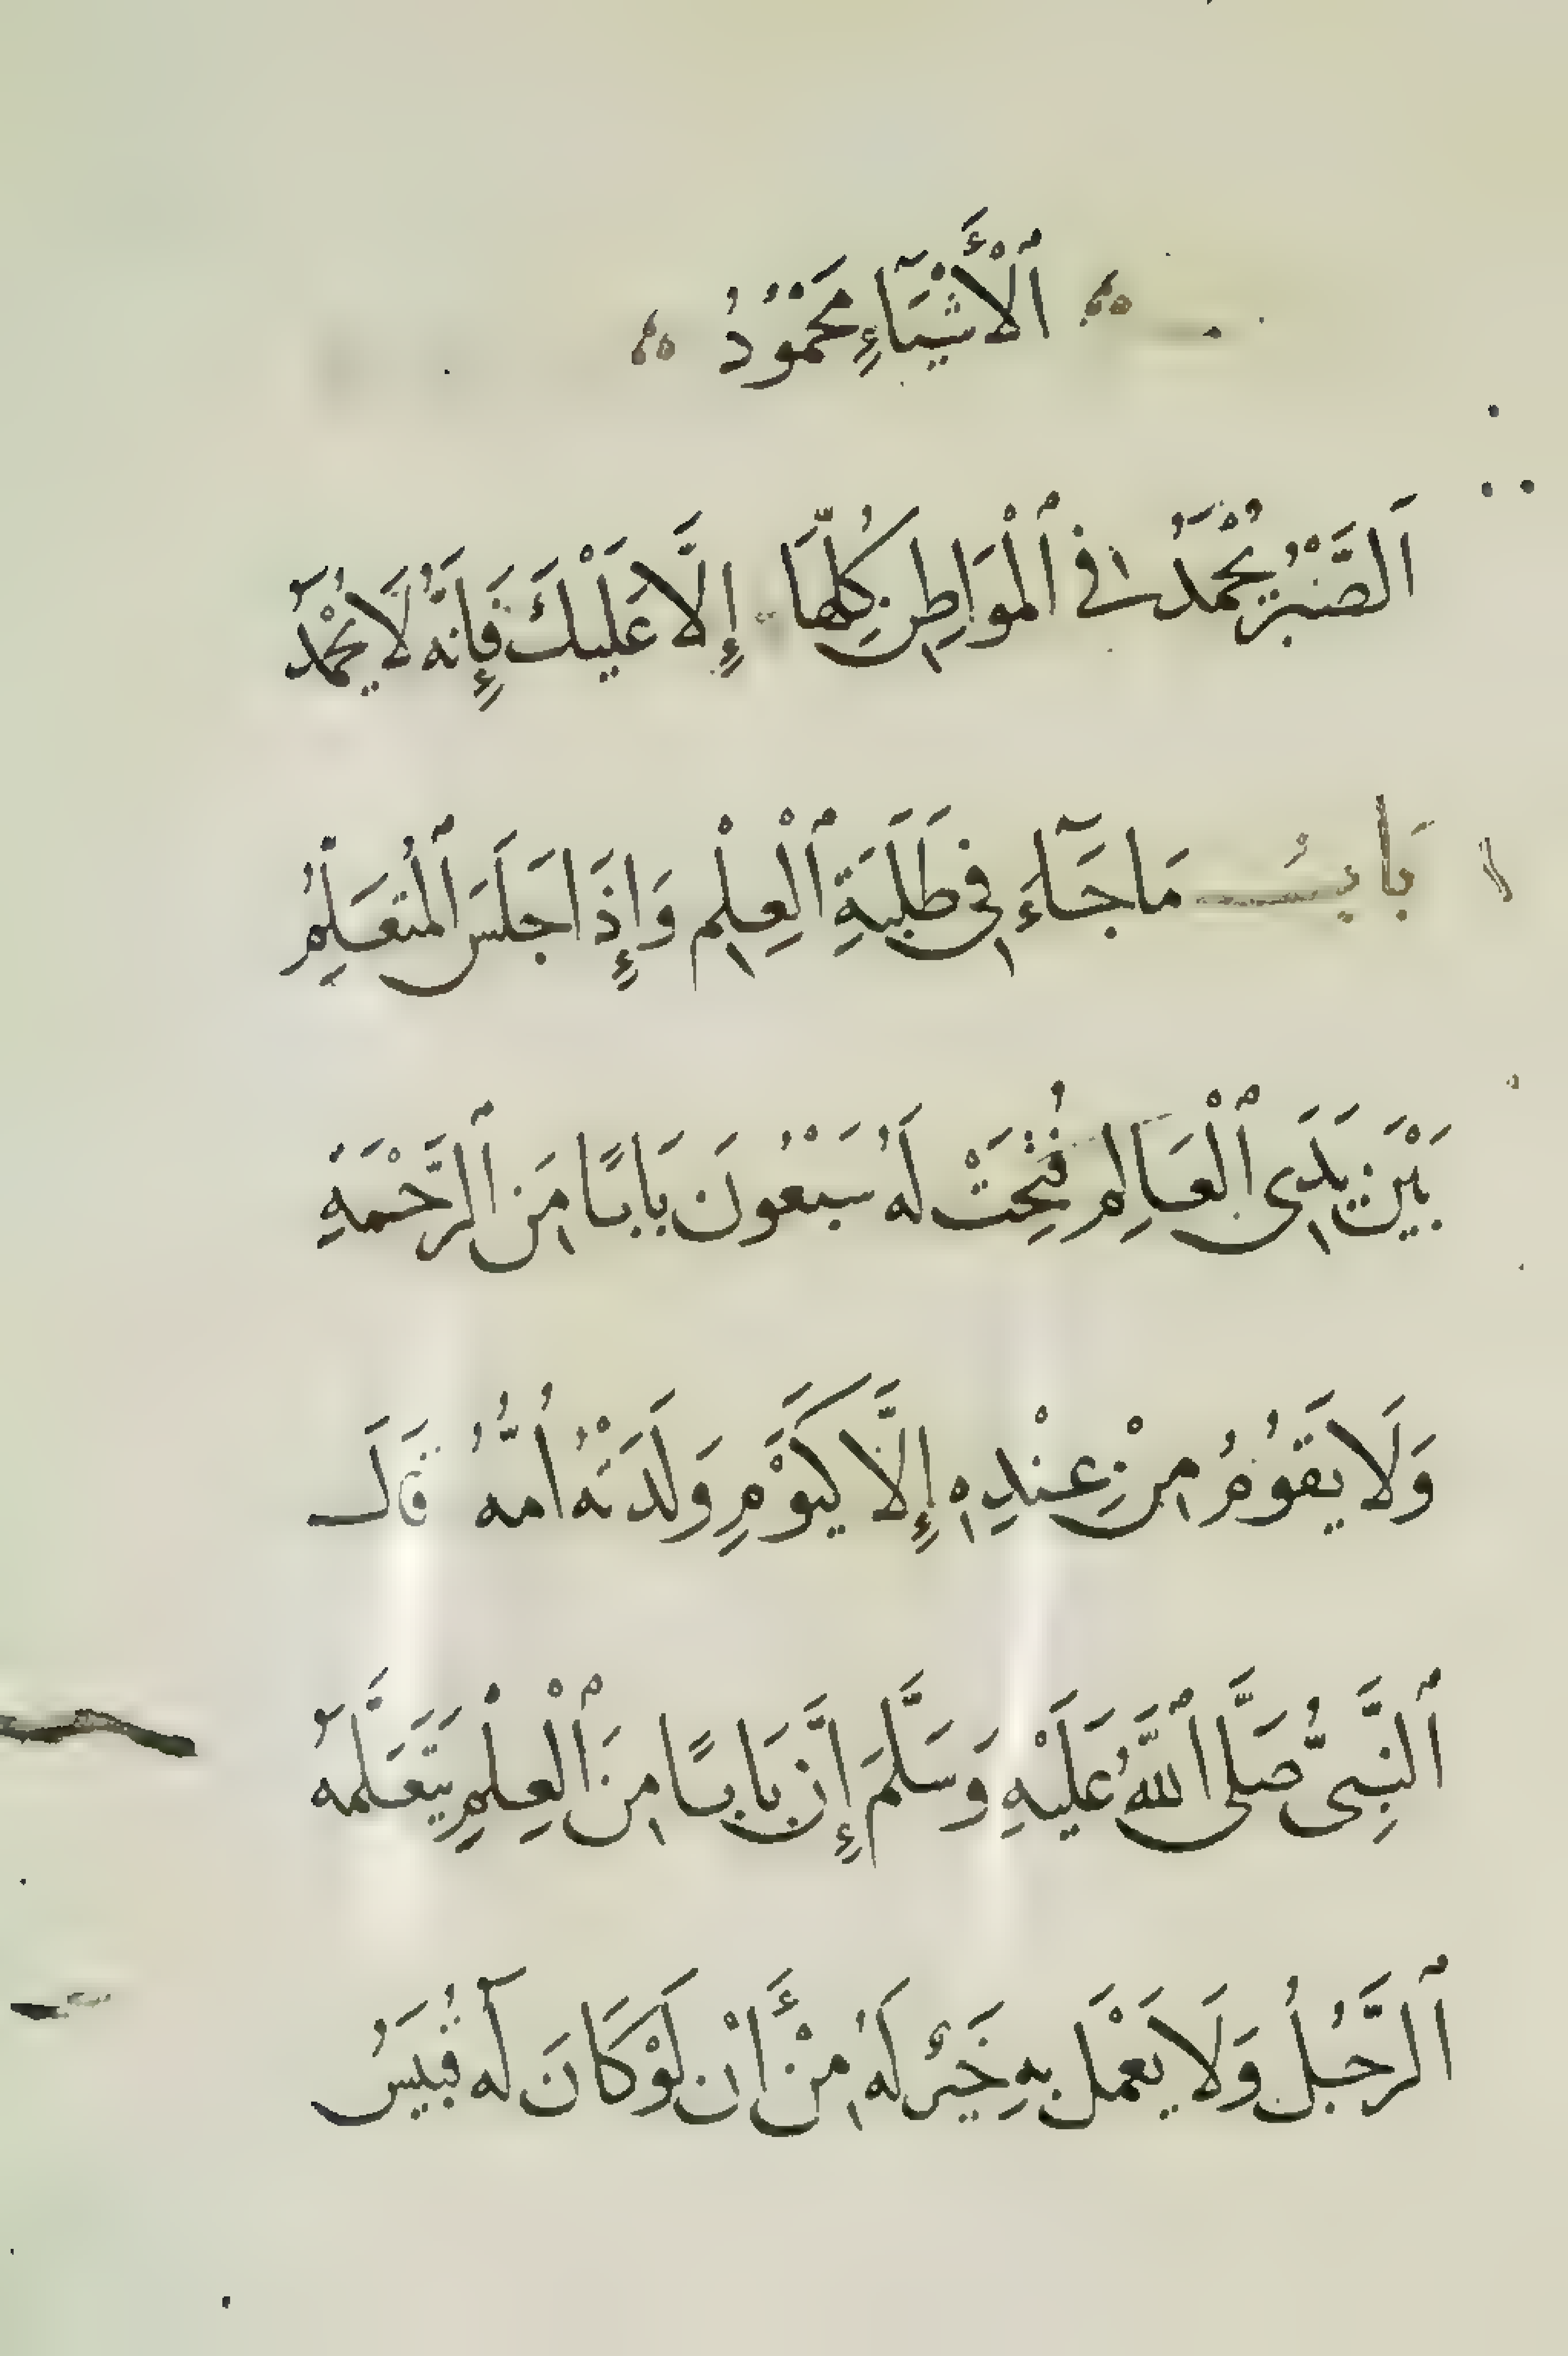 ٱلْأَشْيَآءِ مَحْمُودُ
اَلصَّبْرُ يُحْمَدُ فِى ٱلْمَوَاطِنِ كُلِّهَا إِلَّا عَلَيْكَ فَإِنَّهُ لَا يُحْمَدُ
بَابُ مَا جَآءَ فِى طَلَبَةِ ٱلْعِلْمِ وَإِذَا جَلَسَ ٱلْمُتَعَلِّمُ
بَيْنَ يَدَىِ ٱلْعَالِمِ فُتِحَتْ لَهُ سَبْعُونَ بَابًا مِنَ ٱلرَّحْمَةِ
وَلَا يَقُومُ مِنْ عِنْدِهِ إِلَّا كَيَوْمِ وَلَدَتْهُ أُمُّهُ قَالَ
ٱلنَّبِىُّ صَلَّى ٱللَّهُ عَلَيْهِ وَسَلَّمَ إِنَّ بَابًا مِنَ ٱلْعِلْمِ يَتَعَلَّمُهُ
ٱلرَّجُلُ وَلَا يَعْمَلُ بِهِ خَيْرٌ لَهُ مِنْ أَنْ لَوْ كَانَ لَهُ قُبَيْسُ